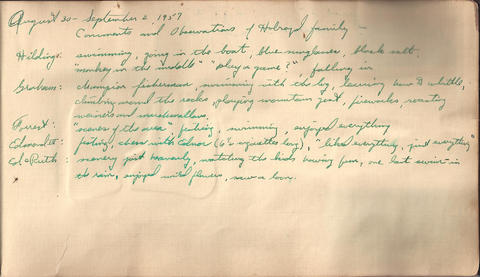 August 30 - September 2, 1957
Comments and Observations of Holroyd family -
swimming, going in the boat, blue sunglasses, black salt,
"monkey in the middle" "play a game?", falling in
Graham: champion fisherman, swimming with the log, learning how to whittle,
climbing around the rocks, playing mountain goat, fireworks, roasting
weiners and marshmallows.
Forrest: "scenes of the area" fishing, swimming, enjoyed everything
fishing, chess with ( long), "liked everything, just everything"
scenery just heavenly, watching the kids having fun, one last swim in
the rain, enjoyed wild flowers, saw a loon.